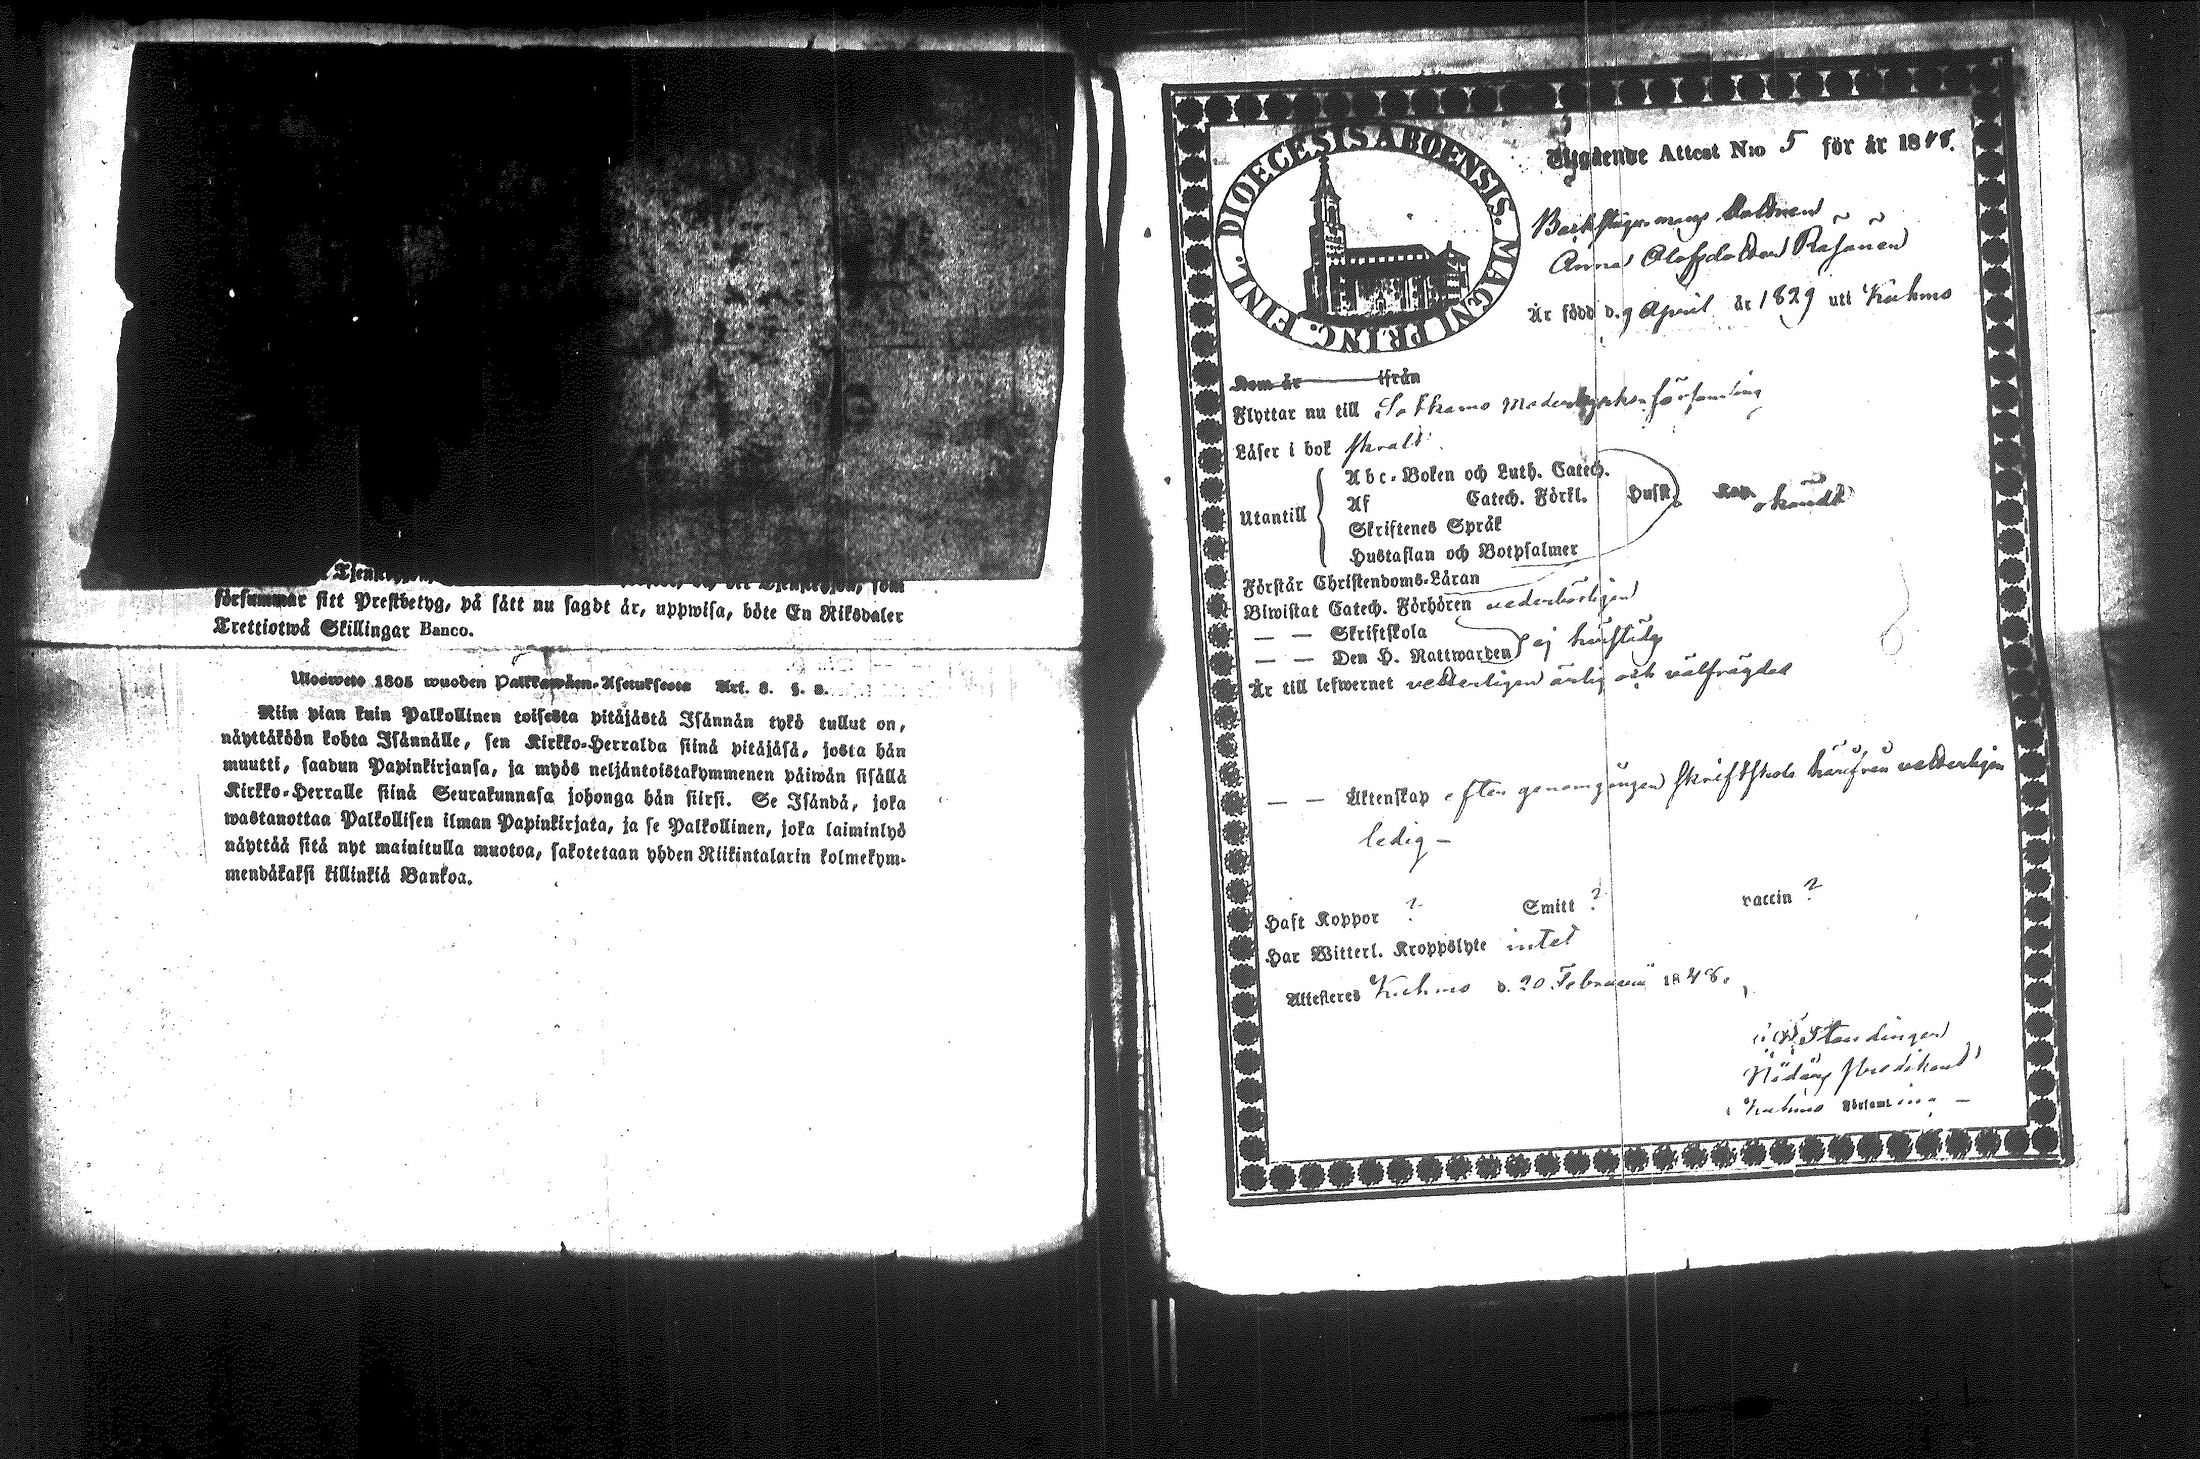 försummar sitt Prestbetyg, på sått nu sagdt år, uppwisa, böte En Riksdaler
Trettiotwå Skillingar Banco.
Ulosweto 1805 wuoden Palkkawåen-Asetuksesta Art. 8. §. 2.
Niin pian kuin Palkollinen toisesta pitåjåstå Isånnån tykö tullut on,
nåyttåköön kohta Isånnålle, sen Kirkko-Herralda siinå pitåjåså, josta hån
muutti, saadun Papinkirjansa, ja myös neljåntoistakymmenen påiwån sisållå
Kirkko-Herralle siinå Seurakunnasa johonga hån siirsi. Se Isåndå, joka
wastanottaa Palkollisen ilman Papinkirjata, ja se Palkollinen, joka laiminlyö
nåyttåå sitå nyt mainitulla muotoa, sakotetaan yhden Riikintalarin kolmekym-
mendåkaksi killinkiå Bankoa.
DIOECESIS ABOENSIS. MAGNI PRINC. FINL.
Utgående Attest N:o 5 för år 1848.
dottren
Anna Olofsdotter
År född d. 9 April år 1829 uti Kuhmo
Kom år ifrån
Flyttar nu till Sotkamo Moderkyrko församling
Låser i bok
Utantill
Abc-Boken och Luth. Catech.
Af Catech. Förkl. Husf.
Skriftenes Språk
Hustaflan och Botpsalmer
Förstår Christendoms-Låran
Biwistat Catech. Förhören vederbörligen
— — Skriftskola
— — Den H. Nattwarden ej
År till lefwernet vetterligen ärlig och välfrägdad
— — Äktenskap efter genomgången Skriftskola härifrån vetterligen
ledig —
Haft Koppor ? Smitt ? vaccin ?
Har Witterl. Kroppslyte intet
Attesteras Kuhmo d. 20 Februarii 1848.
Kuhmo Församling —